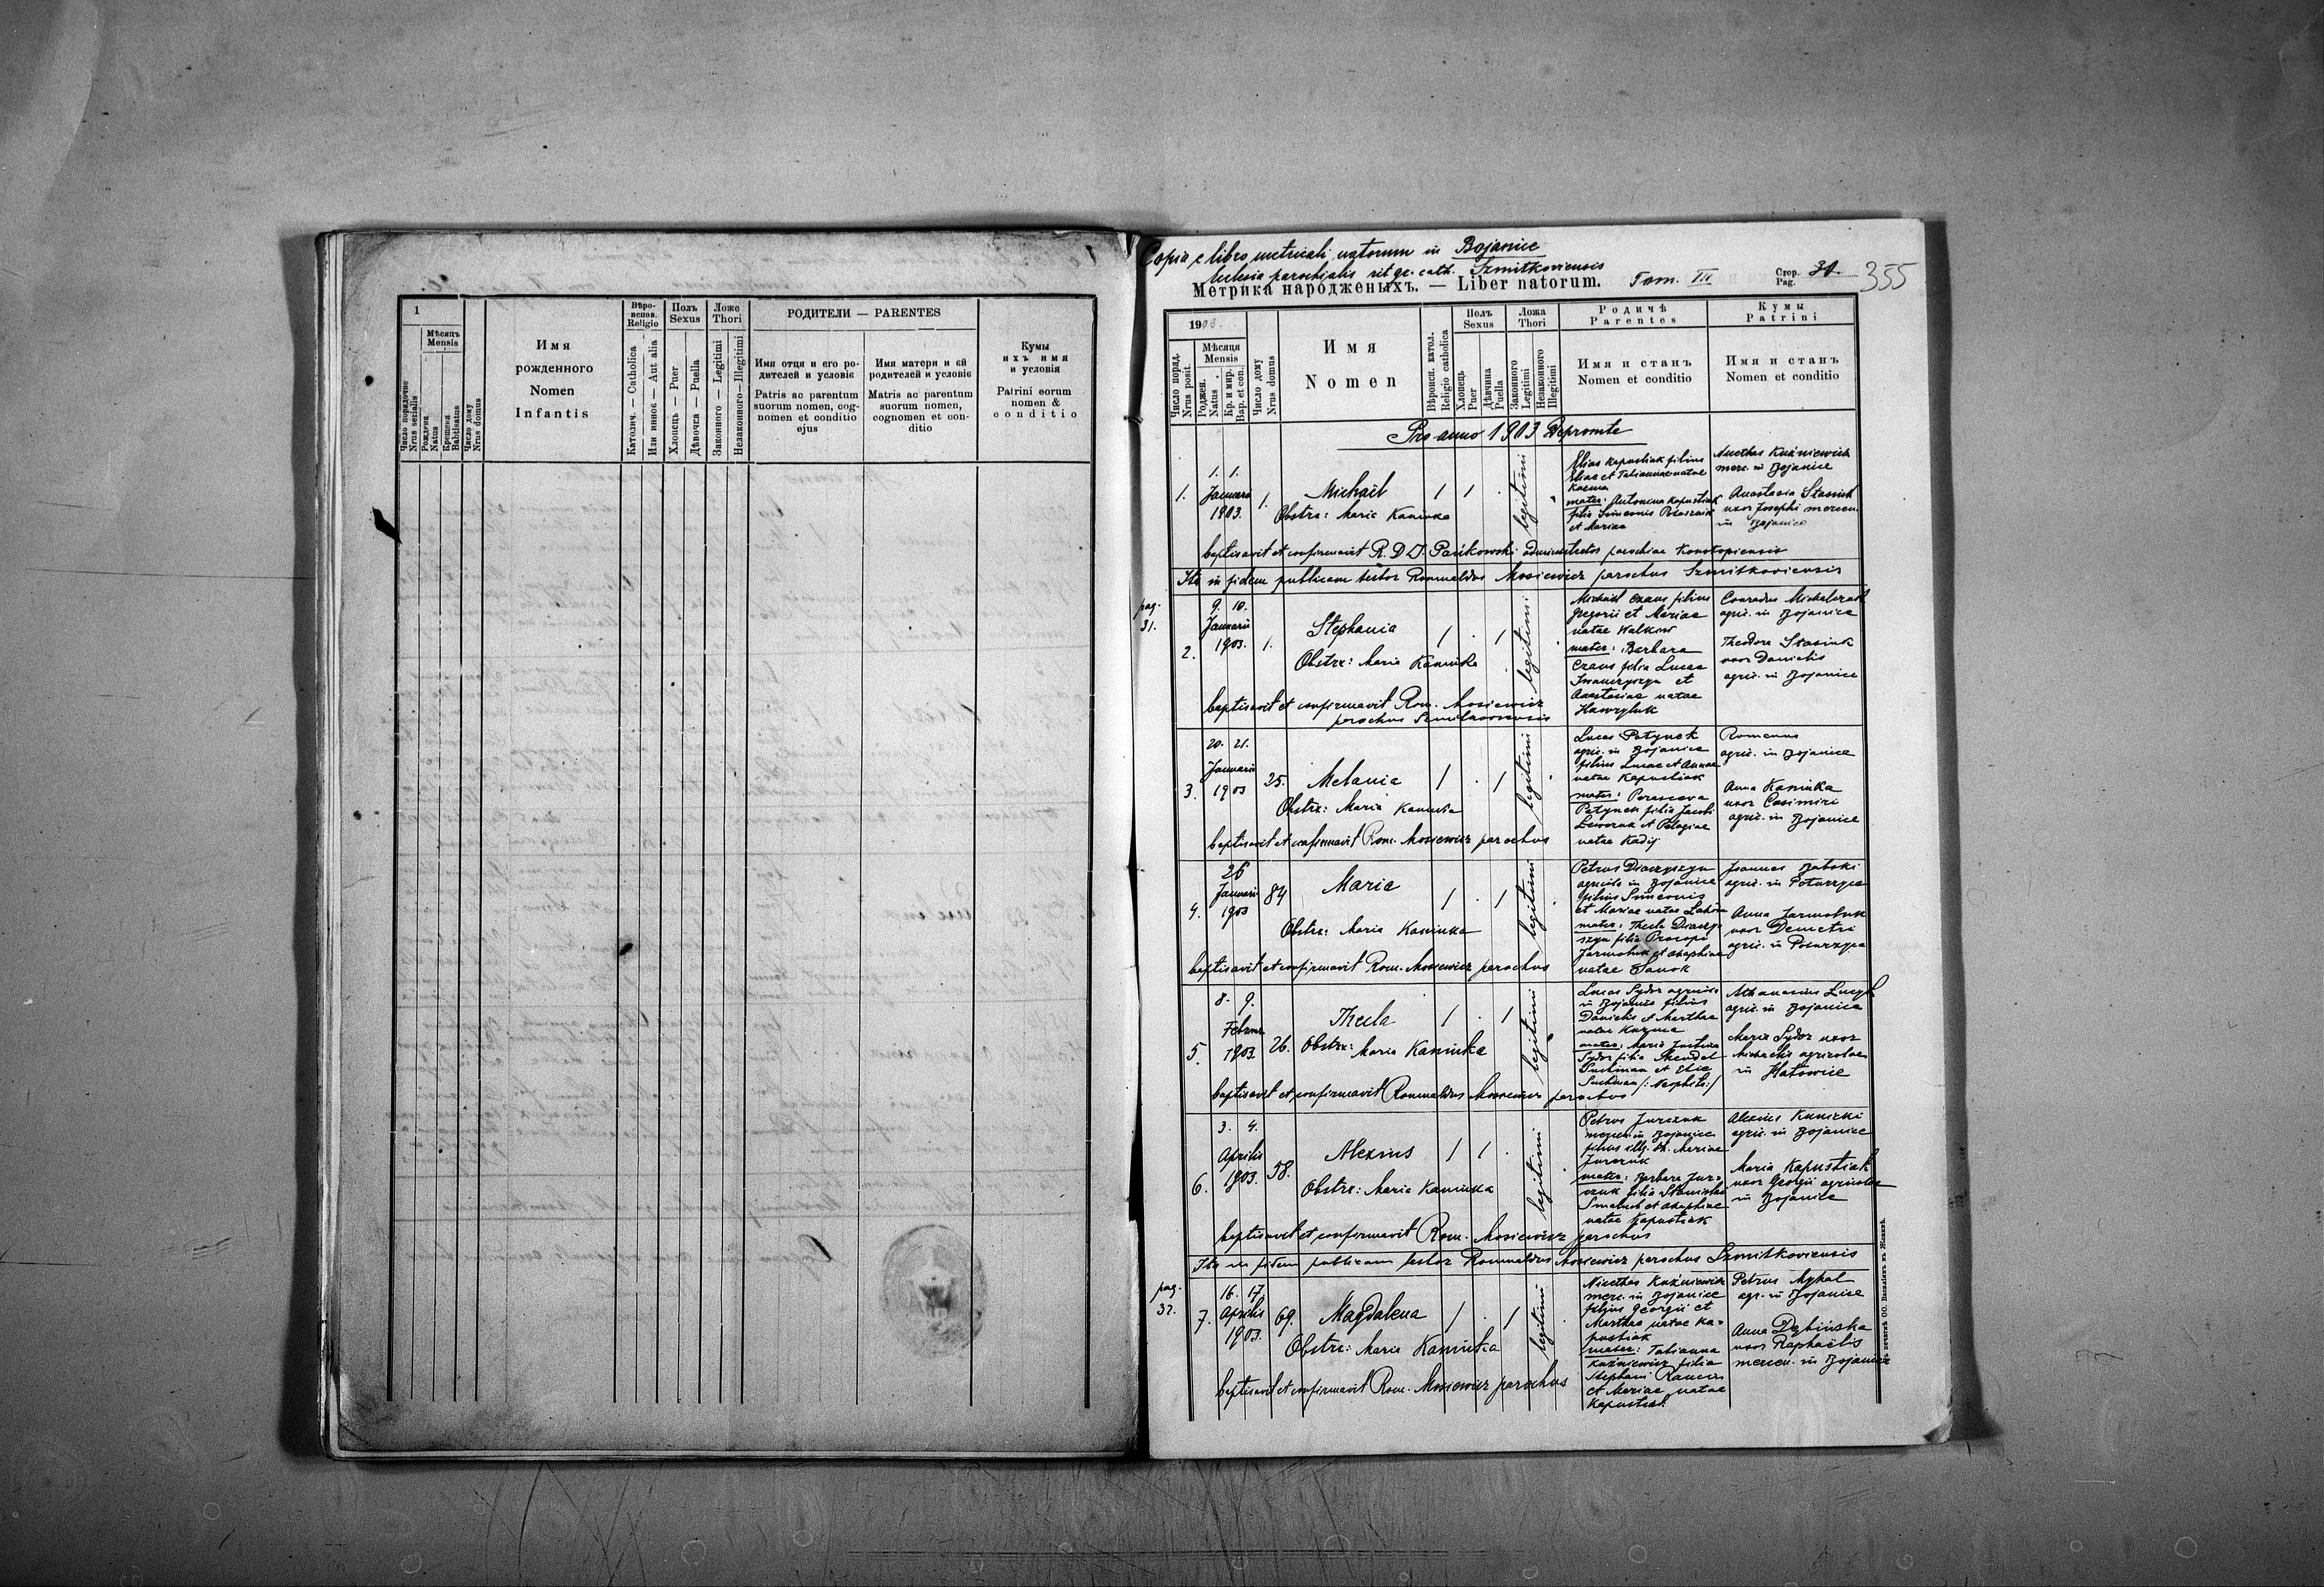 1
Мѣсяцъ
Mensis
Число порядочне
Nrus serialis
Рождена
Natus
Крещена
Babtisatus
Число дому
Nrus domus
Имя
рожденного
Nomen
Infantis
Вѣро-
испов.
Religio
Католич. — Catholica
Или инное — Aut alia
Полъ
Sexus
Хлопець — Puer
Дѣвочка — Puella
Ложе
Thori
Законного — Legitimi
Незаконного — Illegitimi
РОДИТЕЛИ — PARENTES
Имя отця и его ро-
дителей и условіє
Patris ac parentum
suorum nomen, cog-
nomen et conditio
ejus
Имя матери и єй
родителей и условіє
Matris ac parentum
suorum nomen,
cognomen et con-
ditio
Кумы
ихъ имя
и условія
Patrini eorum
nomen &
conditio
Copia e libro metricali natorum in Bojanice
ecclesia parochialis rit. gr. cath. Szmitkoviensis
Метрика народженыхъ. — Liber natorum. Tom. III
Стор.
Pag. 31.
355
1903.
Число поряд.
Nrus posit.
Мѣсяця
Mensis
Роджен.
Natus
Кр. и мир.
Bap. et con.
Число дому
Nrus domus
Имя
Nomen
Вѣроисп. катол.
Religio catholica
Полъ
Sexus
Хлопець
Puer
Дѣвчина
Puella
Ложа
Thori
Законного
Legitimi
Незаконного
Illegitimi
Родичѣ
Parentes
Имя и станъ
Nomen et conditio
Кумы
Patrini
Имя и станъ
Nomen et conditio
Pro anno 1903 Depromte
1. 1. 1.
Januarii
1903.
1.
Michaël
Obstrx: Maria Kaminka
1 1 .
legitimi
Elias Kapustiak filius
Eliae et Tatiannae natae
Kuzma
mater: Antonina Kapustiak
filia Simeonis
et Mariae
Nicethas Kuźniewicz
merc. in Bojanice
Anastasia Stasiuk
uxor Josephi mercen.
in Bojanice
baptisavit et confirmavit R. D. J. Pańkowski administrator parochiae Konotopiensis
Ita in fidem publicam testor Romualdus Mosiewicz parochus Szmitkoviensis
pag.
31.
2. 9. 10.
Januarii
1903.
1.
Stephania
Obstrx: Maria Kaminka
1 . 1
legitimi
Michaël Czaus filius
Gregorii et Mariae
natae Walkow
mater: Barbara
Czaus filia Lucae
Iwanczyszyn et
Anastasiae natae
Hawryluk
Conradus Michalczuk
agric. in Bojanice
Theodora Stasiuk
uxor Danielis
agric. in Bojanice
baptisavit et confirmavit Rom. Mosiewicz
parochus Szmitkoviensis
3. 20. 21.
Januarii
1903
25.
Melania
Obstrx: Maria Kaminka
1 . 1
legitimi
Lucas Patynek
agric. in Bojanice
filius Lucae et Annae
natae Kapustiak
mater: Parasceva
Patynek filia Jacobi
et Pelagiae
natae Kadij
Romanus
agric. in Bojanice
Anna Kaminka
uxor Casimiri
agric. in Bojanice
baptisavit et confirmavit Rom. Mosiewicz parochus
4. 26
Januarii
1903
84
Maria
Obstrx: Maria Kaminka
1 . 1
legitimi
Petrus Diaczyszyn
agricola in Bojanice
filius Simeonis
et Mariae natae
mater: Thecla Diaczy-
szyn filia Procopi
Jarmoluk et Agaphiae
natae Sauok
Joannes Babski
agric. in Poturzyca
Anna Jarmoluk
uxor Demetri
agric. in Poturzyca
baptisavit et confirmavit Rom. Mosiewicz parochus
5. 8. 9.
Februar.
1903.
26.
Thecla
Obstrx: Maria Kaminka
1 . 1
legitimi
Lucas Sydor agricola
in Bojanice filius
Danielis et Martha
natae Kuzma
mater: Maria Justina
Sydor filia Mendel
Suchman et Elie
Suchman /: Neophita :/
Athanasius
agric. in Bojanice
Maria Sydor uxor
Michaelis agricolae
in Hatowice
baptisavit et confirmavit Romualdus Mosiewicz parochus
6. 3. 4.
Aprilis
1903.
58.
Alexius
Obstrx: Maria Kaminka
1 1 .
legitimi
Petrus Jurczuk
mercen. in Bojanice
filius illg. th. Mariae
Jurczuk
mater: Barbara Jur-
czuk filia Stanislai
et Agaphiae
natae Kapustiak
Alexius Kunicki
agric. in Bojanice
Maria Kapustiak
uxor Georgii agricolae
in Bojanice
baptisavit et confirmavit Rom. Mosiewicz parochus
Ita in fidem publicam testor Romualdus Mosiewicz parochus Szmitkoviensis
pag.
32.
7. 16. 17.
Aprilis
1903.
69.
Magdalena
Obstrx: Maria Kaminka
1 . 1
legitimi
Nicethas Kuźniewicz
merc. in Bojanice
filius Georgii et
Martha natae Ka-
pustiak
mater: Tatianna
Kuźniewicz filia
Stephani
et Mariae natae
Kapustiak
Petrus
agr. in Bojanice
Anna Dębińska
uxor Raphaëlis
mercen. in Bojanice
baptisavit et confirmavit Rom. Mosiewicz parochus